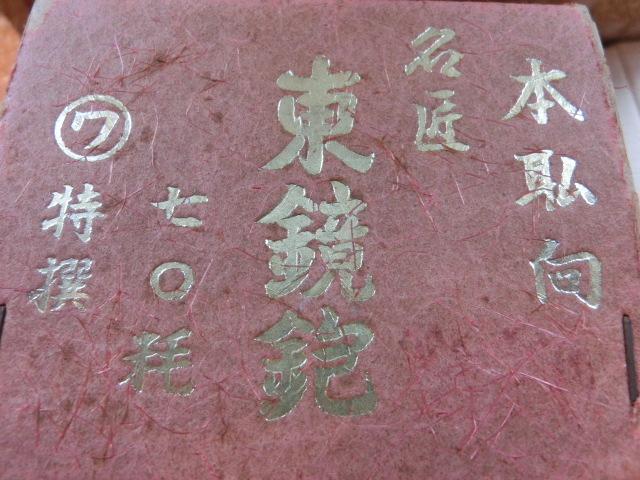 本职向
名匠
東鏡鉋
七〇粍
㋻特撰